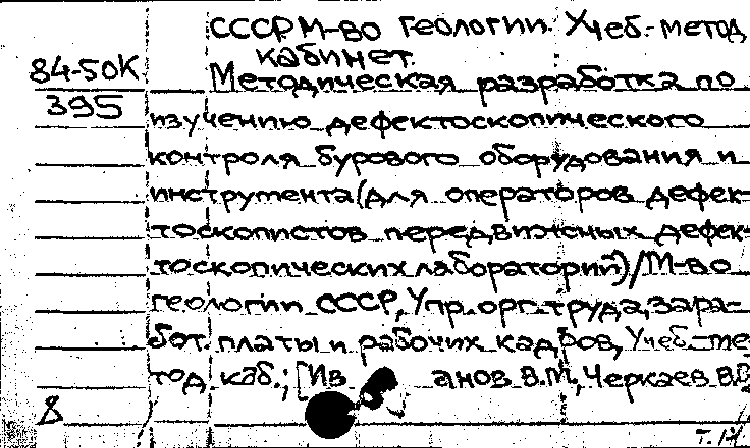 СССР М-во геологии. Учеб.-метод
кабинет.
84-50К
Методическая разработка по
395
изучению дефектоскопического
контроля бурового оборудования и
инструмента (для операторов дефек-
тоскопистов передвижных дефек-
тоскопических лабораторий)/М-во
геологии СССР, Упр. орг. труда, зара-
бот. платы и рабочих кадров, Учеб.-ме-
тод. каб.; [Ив анов В.М., Черкаев В.
8